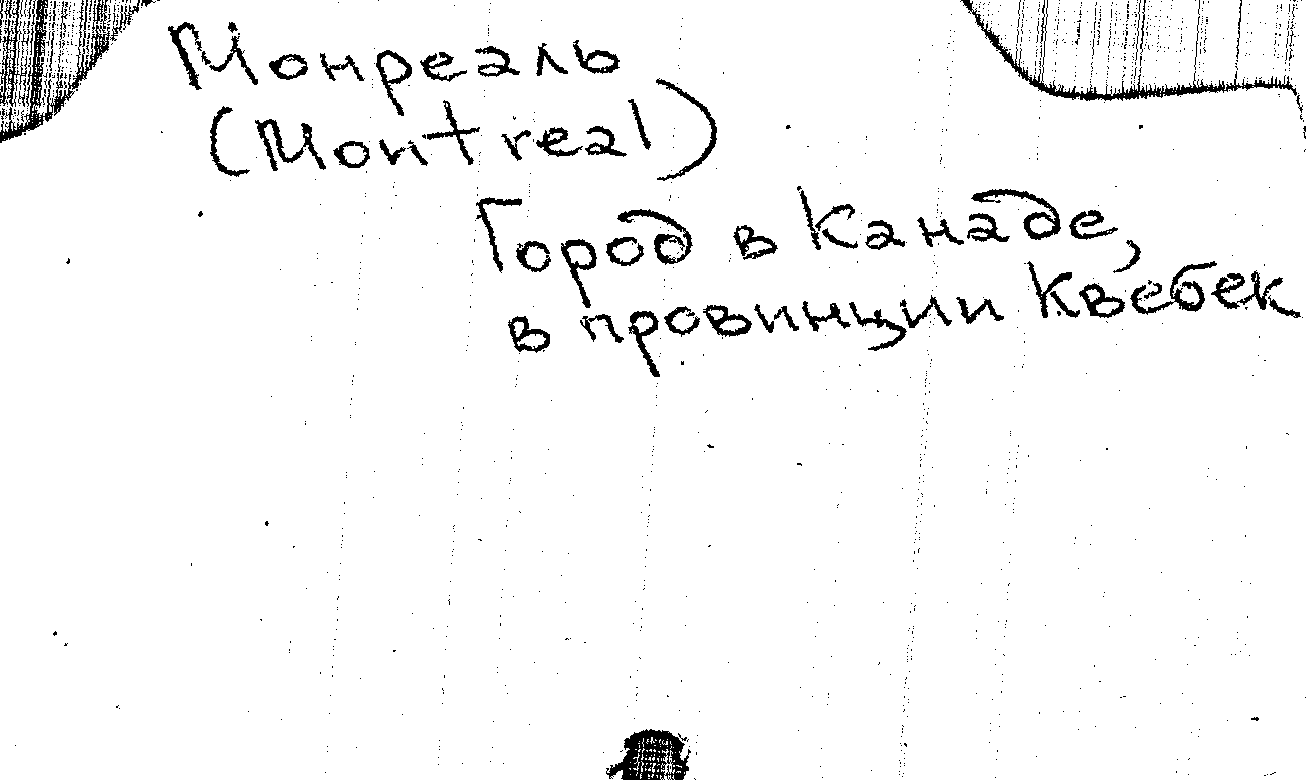 Монреаль
(Montreal)
Город в Канаде,
в провинции Квебек